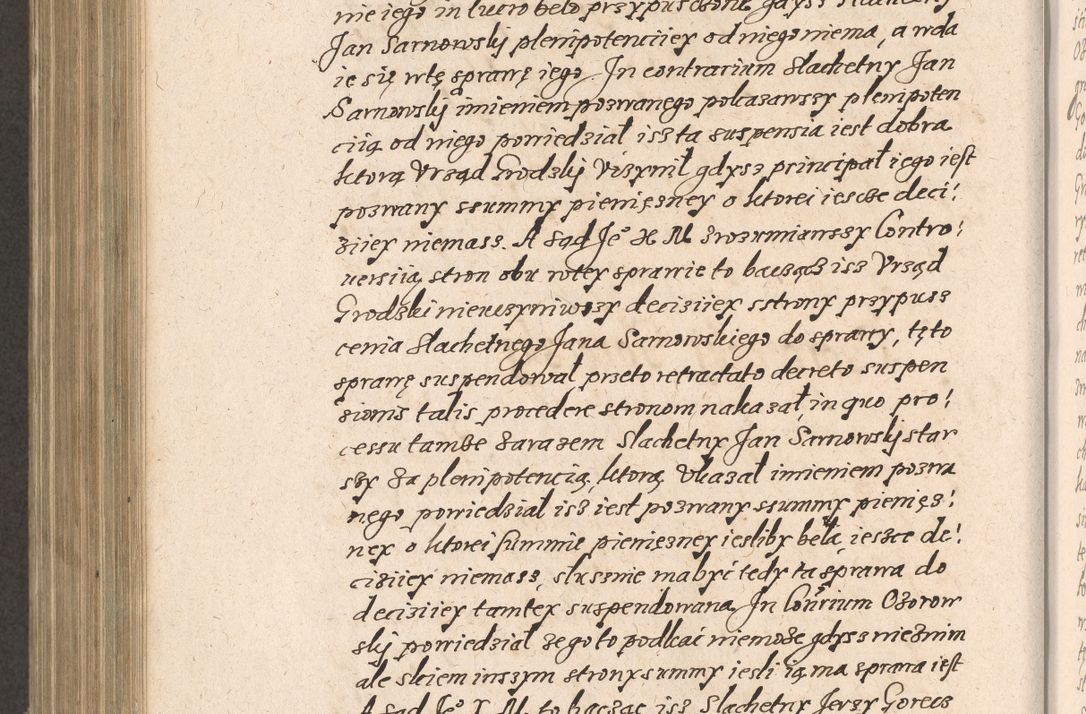 nie iego in lucro beło przypusczoni gdysz Slachetny
Jan Sarnowskij plenipotenciiey od niego niema, a wda
ie się wtę sprawę iego. In contrarium Slachetny Jan
Sarnowskij imieniem pozwanego pokazawszy plenipoten
ciią od niego powiedział isz ta suspensia iest dobra
ktorą Vrząd Grodzkij Vczynił gdysz principał iego iest
pozwany ssummy pieniężney o ktorei iescze deci:
ziiey niemasz. A Sąd Je° X M zrozumiawszy Contro:
uersiią stron obu wtey sprawie to bacząc isz Vrząd
Grodzki nieuczyniwszy deciziiey sstrony przypusz
cenia Slachetnego Jana Sarnowskiego do sprawy, tę to
sprawę suspendował przeto retractato decreto suspen
sionis talis procedere stronom nakazał, in quo pro:
cessu tamże zarazem Slachetny Jan Sarnowskij star
szy za plenipotencią, ktorą Vkazał imieniem pozwa
nęgo powiedział isz iest pozwany ssummy pienięż:
ney o ktorei summie pieniężney iesliby beła iescze de:
ciziiey niemasz, slusznie ma być tedy ta sprawa do
deciziiey tamtey suspendowana. In Cońrium Ożorow
skij powiedział że go to podkać niemoże gdysz nie żnim
ale skiem inszym strony summy iesli ią ma sprawa iest
A Sąd Je° X M to bacząc isz Slachetny Jerzy Gorecz